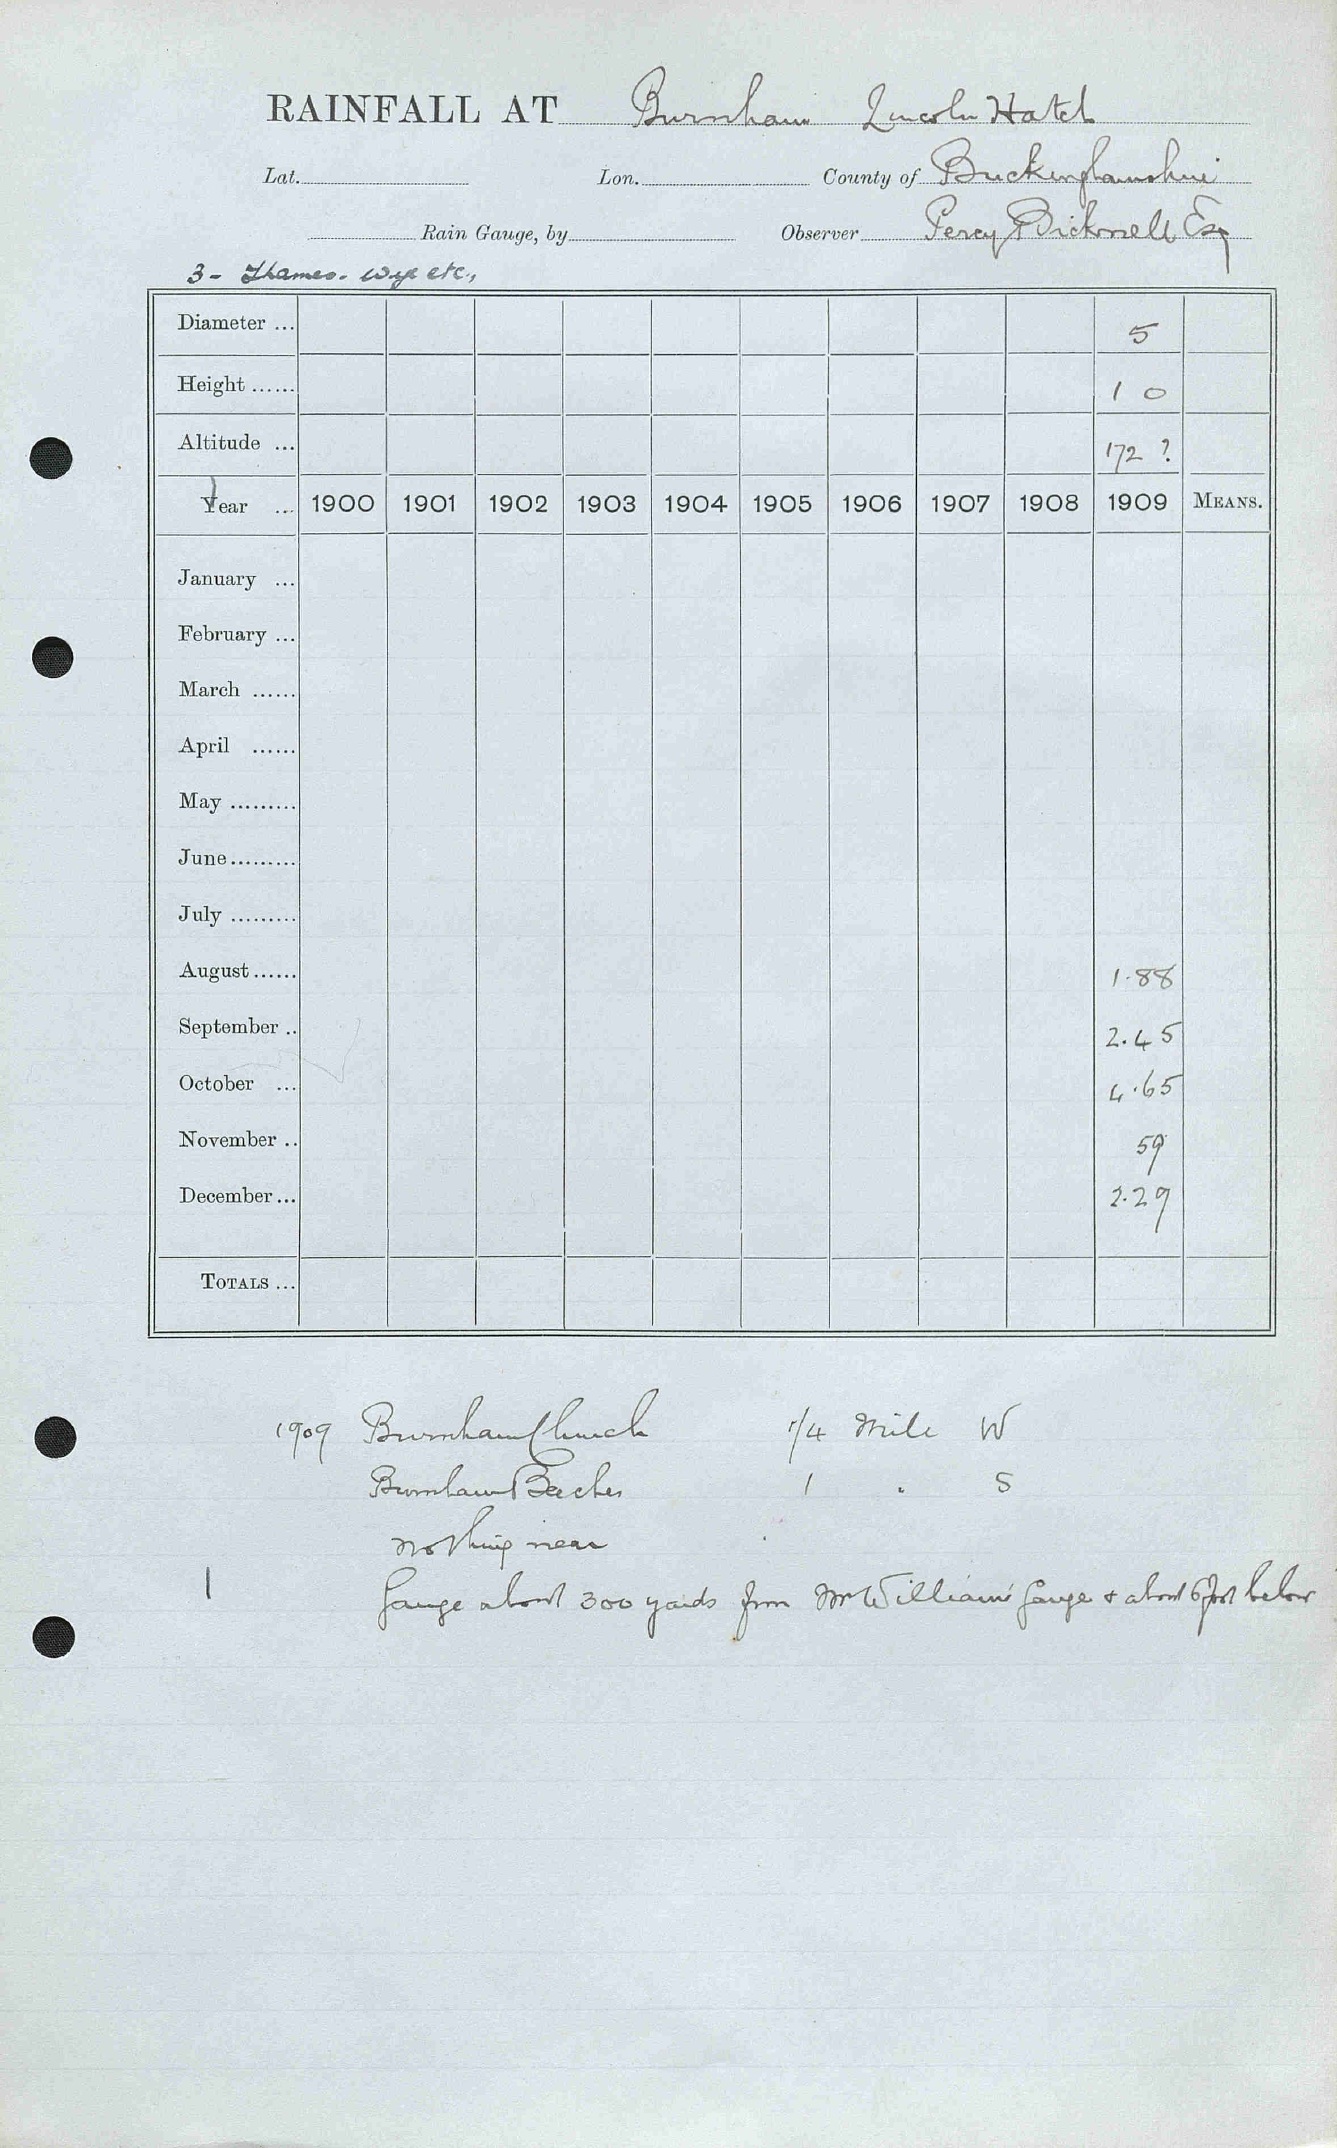 RAINFALL AT Burnham Lincoln Hatch
Lat. Lon. County of Buckinghamshire
Rain Gauge, by Observer Percy Bicknell Esq
3 - Thames - Wye etc.,
Diameter ... 5
Height ...... 1 0
Altitude ... 172 ?
Year ... 1900 1901 1902 1903 1904 1905 1906 1907 1908 1909 MEANS.
January ...
February ...
March ......
April ......
May .........
June .........
July .........
August ...... 1.88
September .. 2.45
October ... 4.65
November .. 59
December ... 2.29
TOTALS ...
1909 Burnham Church 1/4 Mile W
Burnham Beeches 1 " S
Nothing near
Gauge about 300 yards from Mr William's Gauge & about 6 foot below